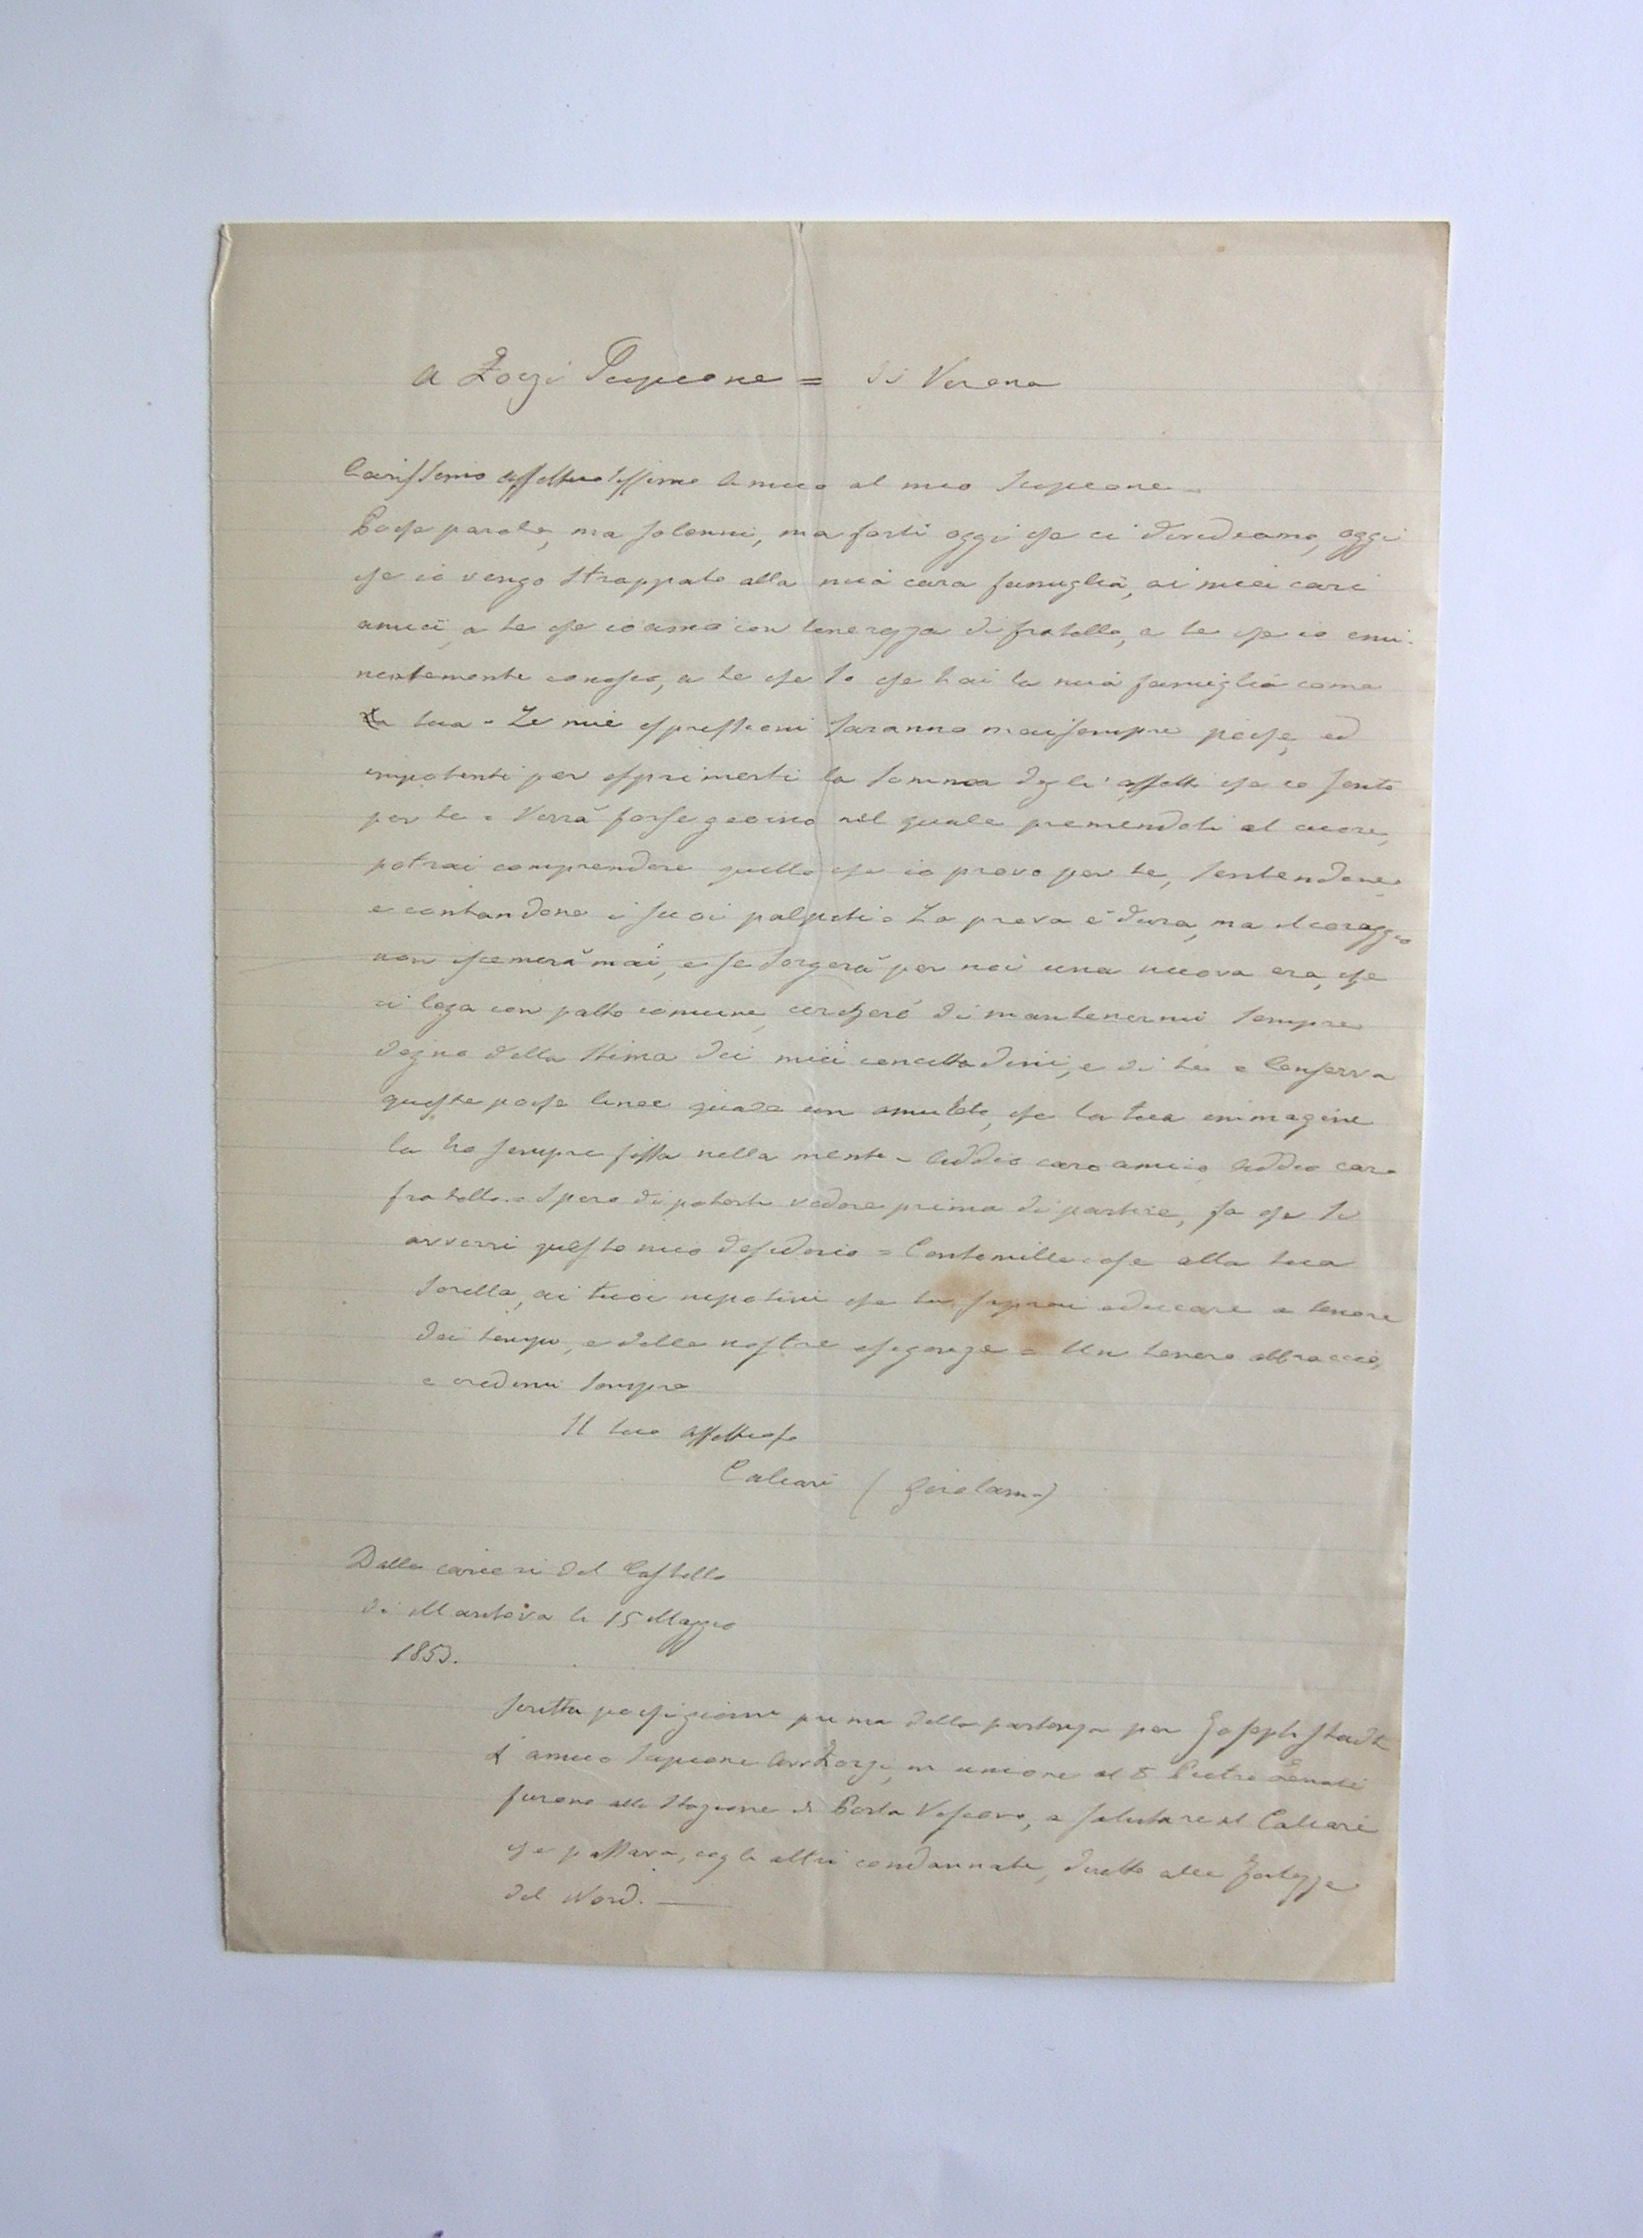 A Zorzi Scipione = di Verona
Carissimo affettuosissimo amico al mio Scipione -
Poche parole, ma solenni, ma forti oggi che ci dividiamo, oggi
che io vengo strappato alla mia cara famiglia, ai miei cari
amici, a te che io amo con tenerezza di fratello, a te che io emi-
nentemente conosco, a te che so che hai la mia famiglia come
la tua - Le mie espressioni saranno maisempre poche, ed
impotenti per esprimerti la somma degli affetti che io sento
per te = Verrà forse giorno nel quale premendoti al cuore,
potrai comprendere quello che io provo per te, sentendone
e contandone i suoi palpiti = La prova è dura, ma il coraggio
non scemerà mai, e se sorgerà per noi una nuova era, che
ci lega con patto comune, cercherò di mantenermi sempre
degno della stima dei miei concittadini, e di te = Conserva
queste poche linee quale un amuleto, che la tua immagine
la ho sempre fissa nella mente - Addio caro amico, addio caro
fratello = Spero di poterti vedere prima di partire, fa che si
avverri questo mio desiderio = Cento mille cose alla tua
sorella, ai tuoi nepotini che tu saprai educare a tenore
dei tempi, e delle nostre esigenze = Un tenero abbraccio,
e credimi sempre
Il tuo affettuoso
Caliari (Girolamo)
Dalle carceri del Castello
di Mantova li 15 Maggio
1853.
Scritta pochi giorni prima della partenza per Josephstadt
L'amico Scipione Avv. Zorzi, in unione al D. Pietro Zenati
furono alla Stazione di Porta Vescovo, a salutare il Caliari
che passava, cogli altri condannati, diretto alle Fortezze
del Nord. —